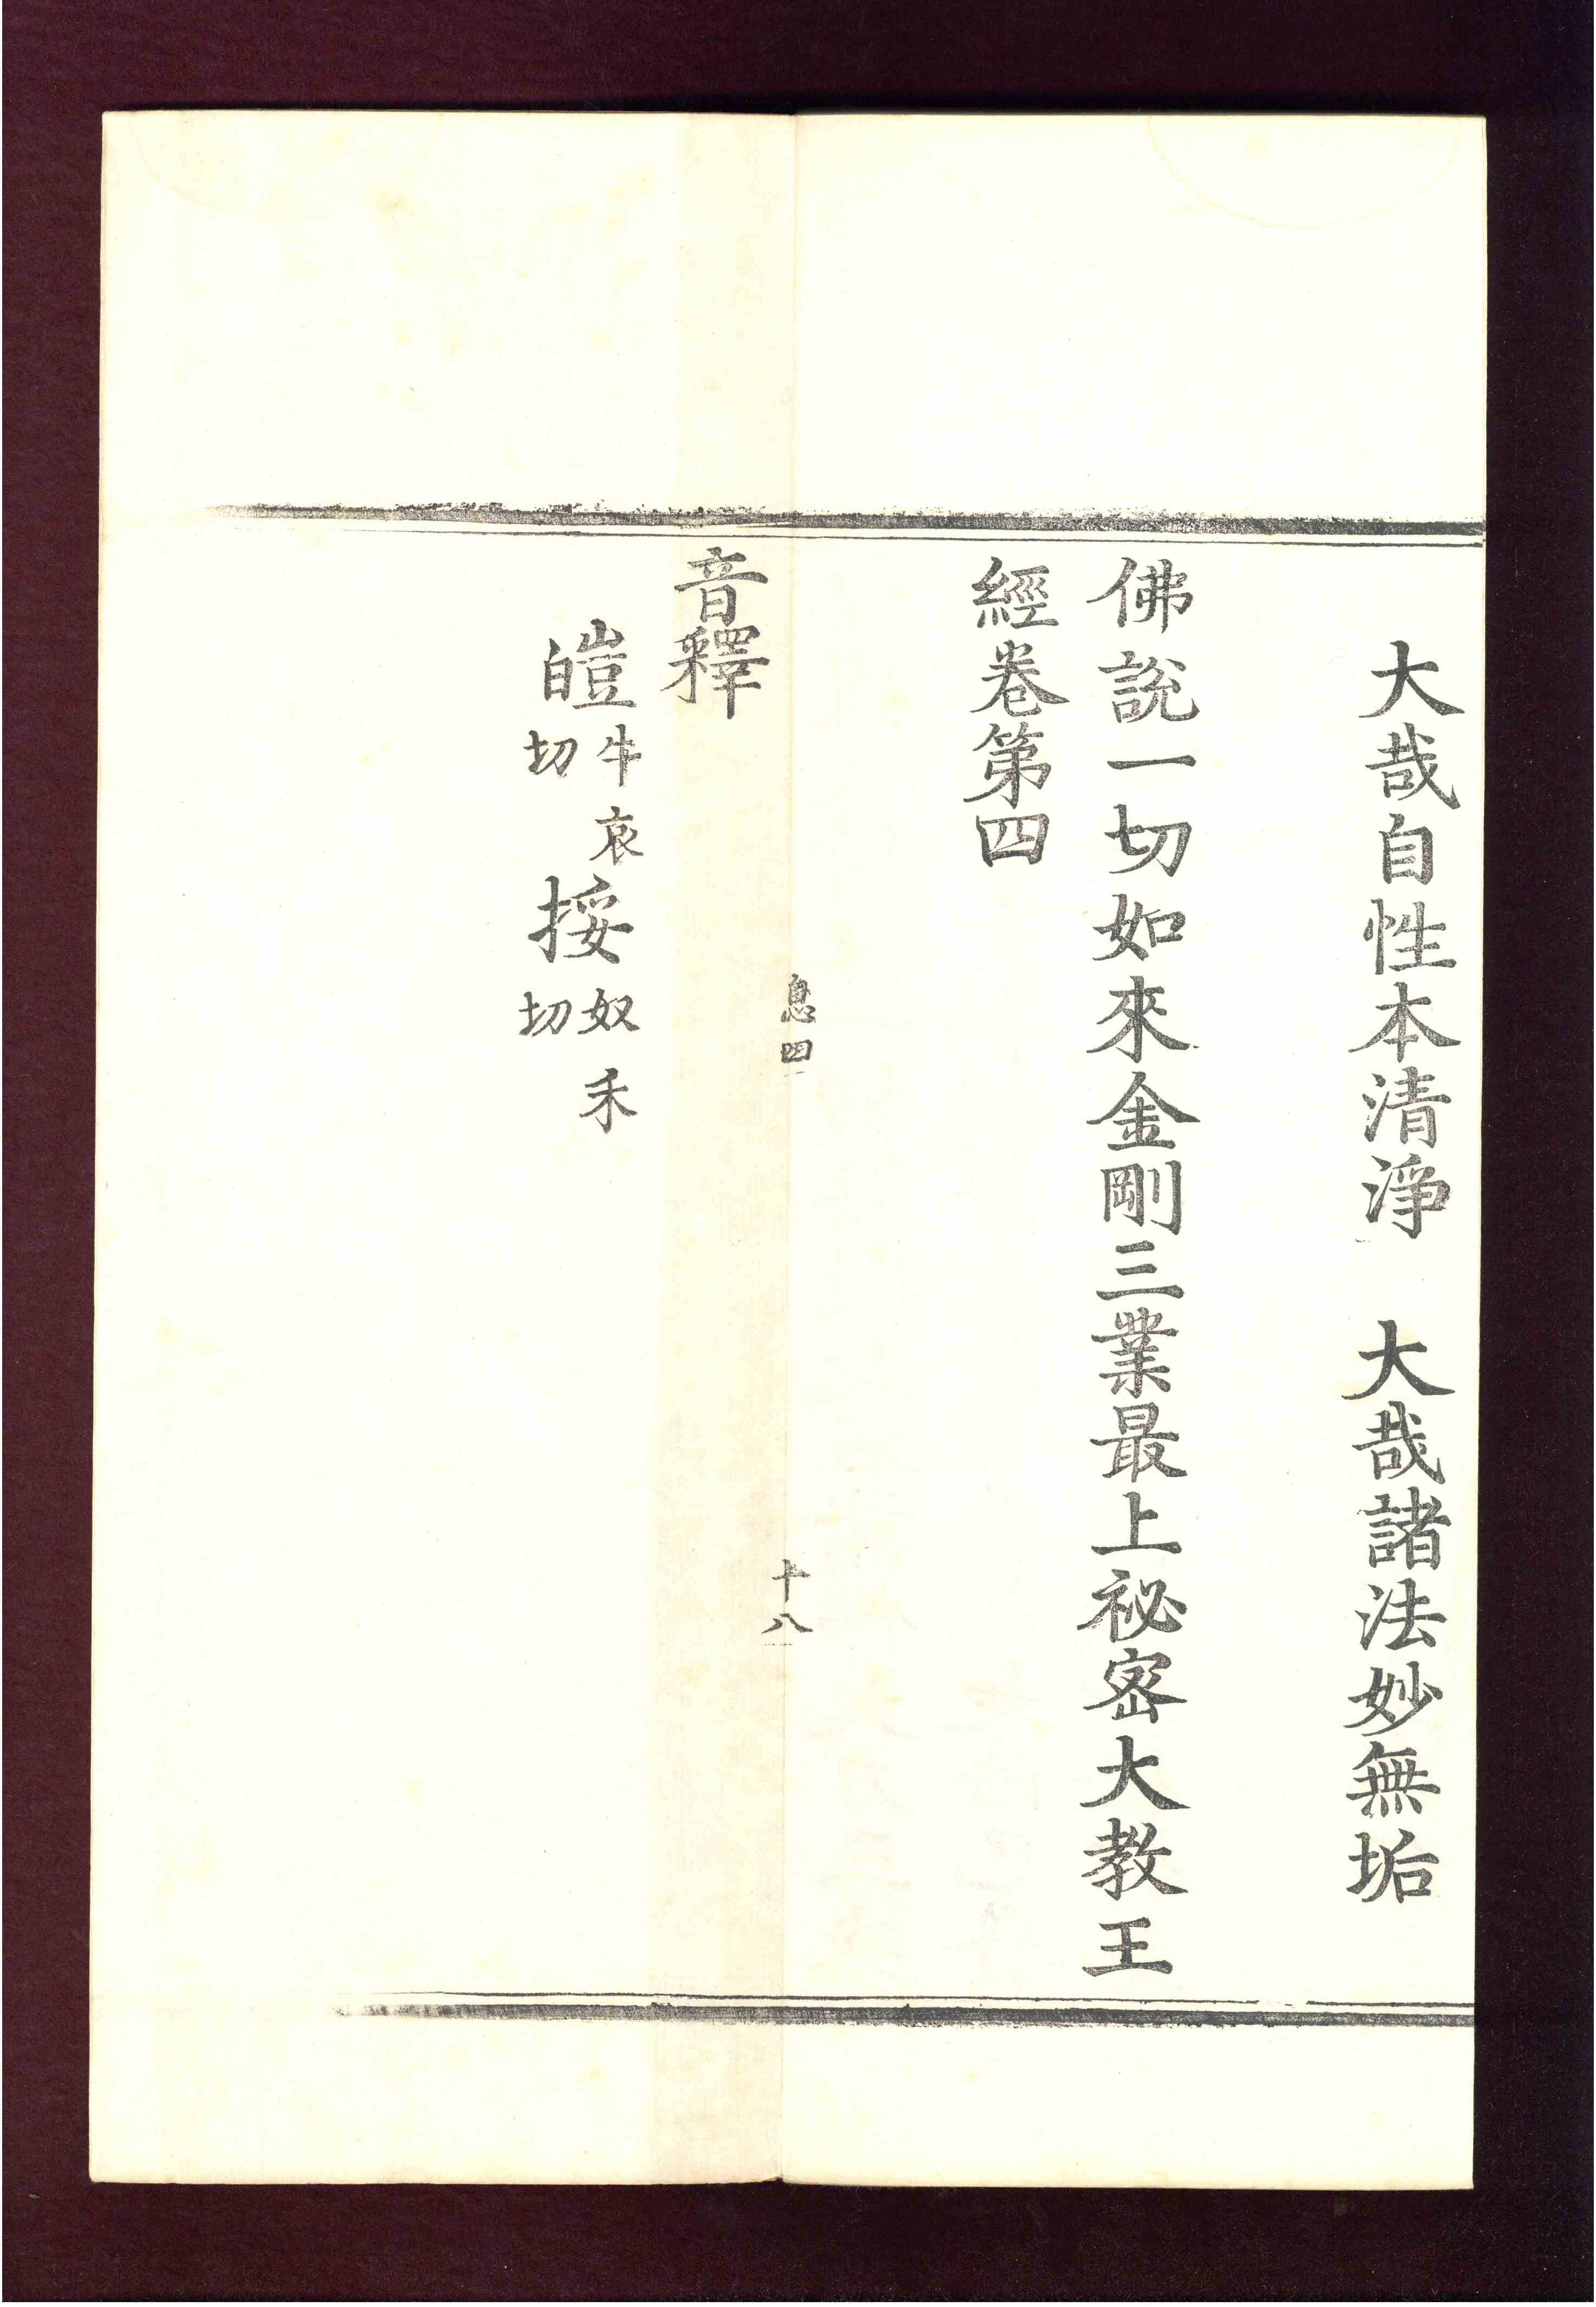 大哉自性本清淨　大哉諸法妙無垢
佛說一切如來金剛三業最上祕密大教王
經卷第四
息四　十八
音釋
皚牛哀切　挼奴禾切